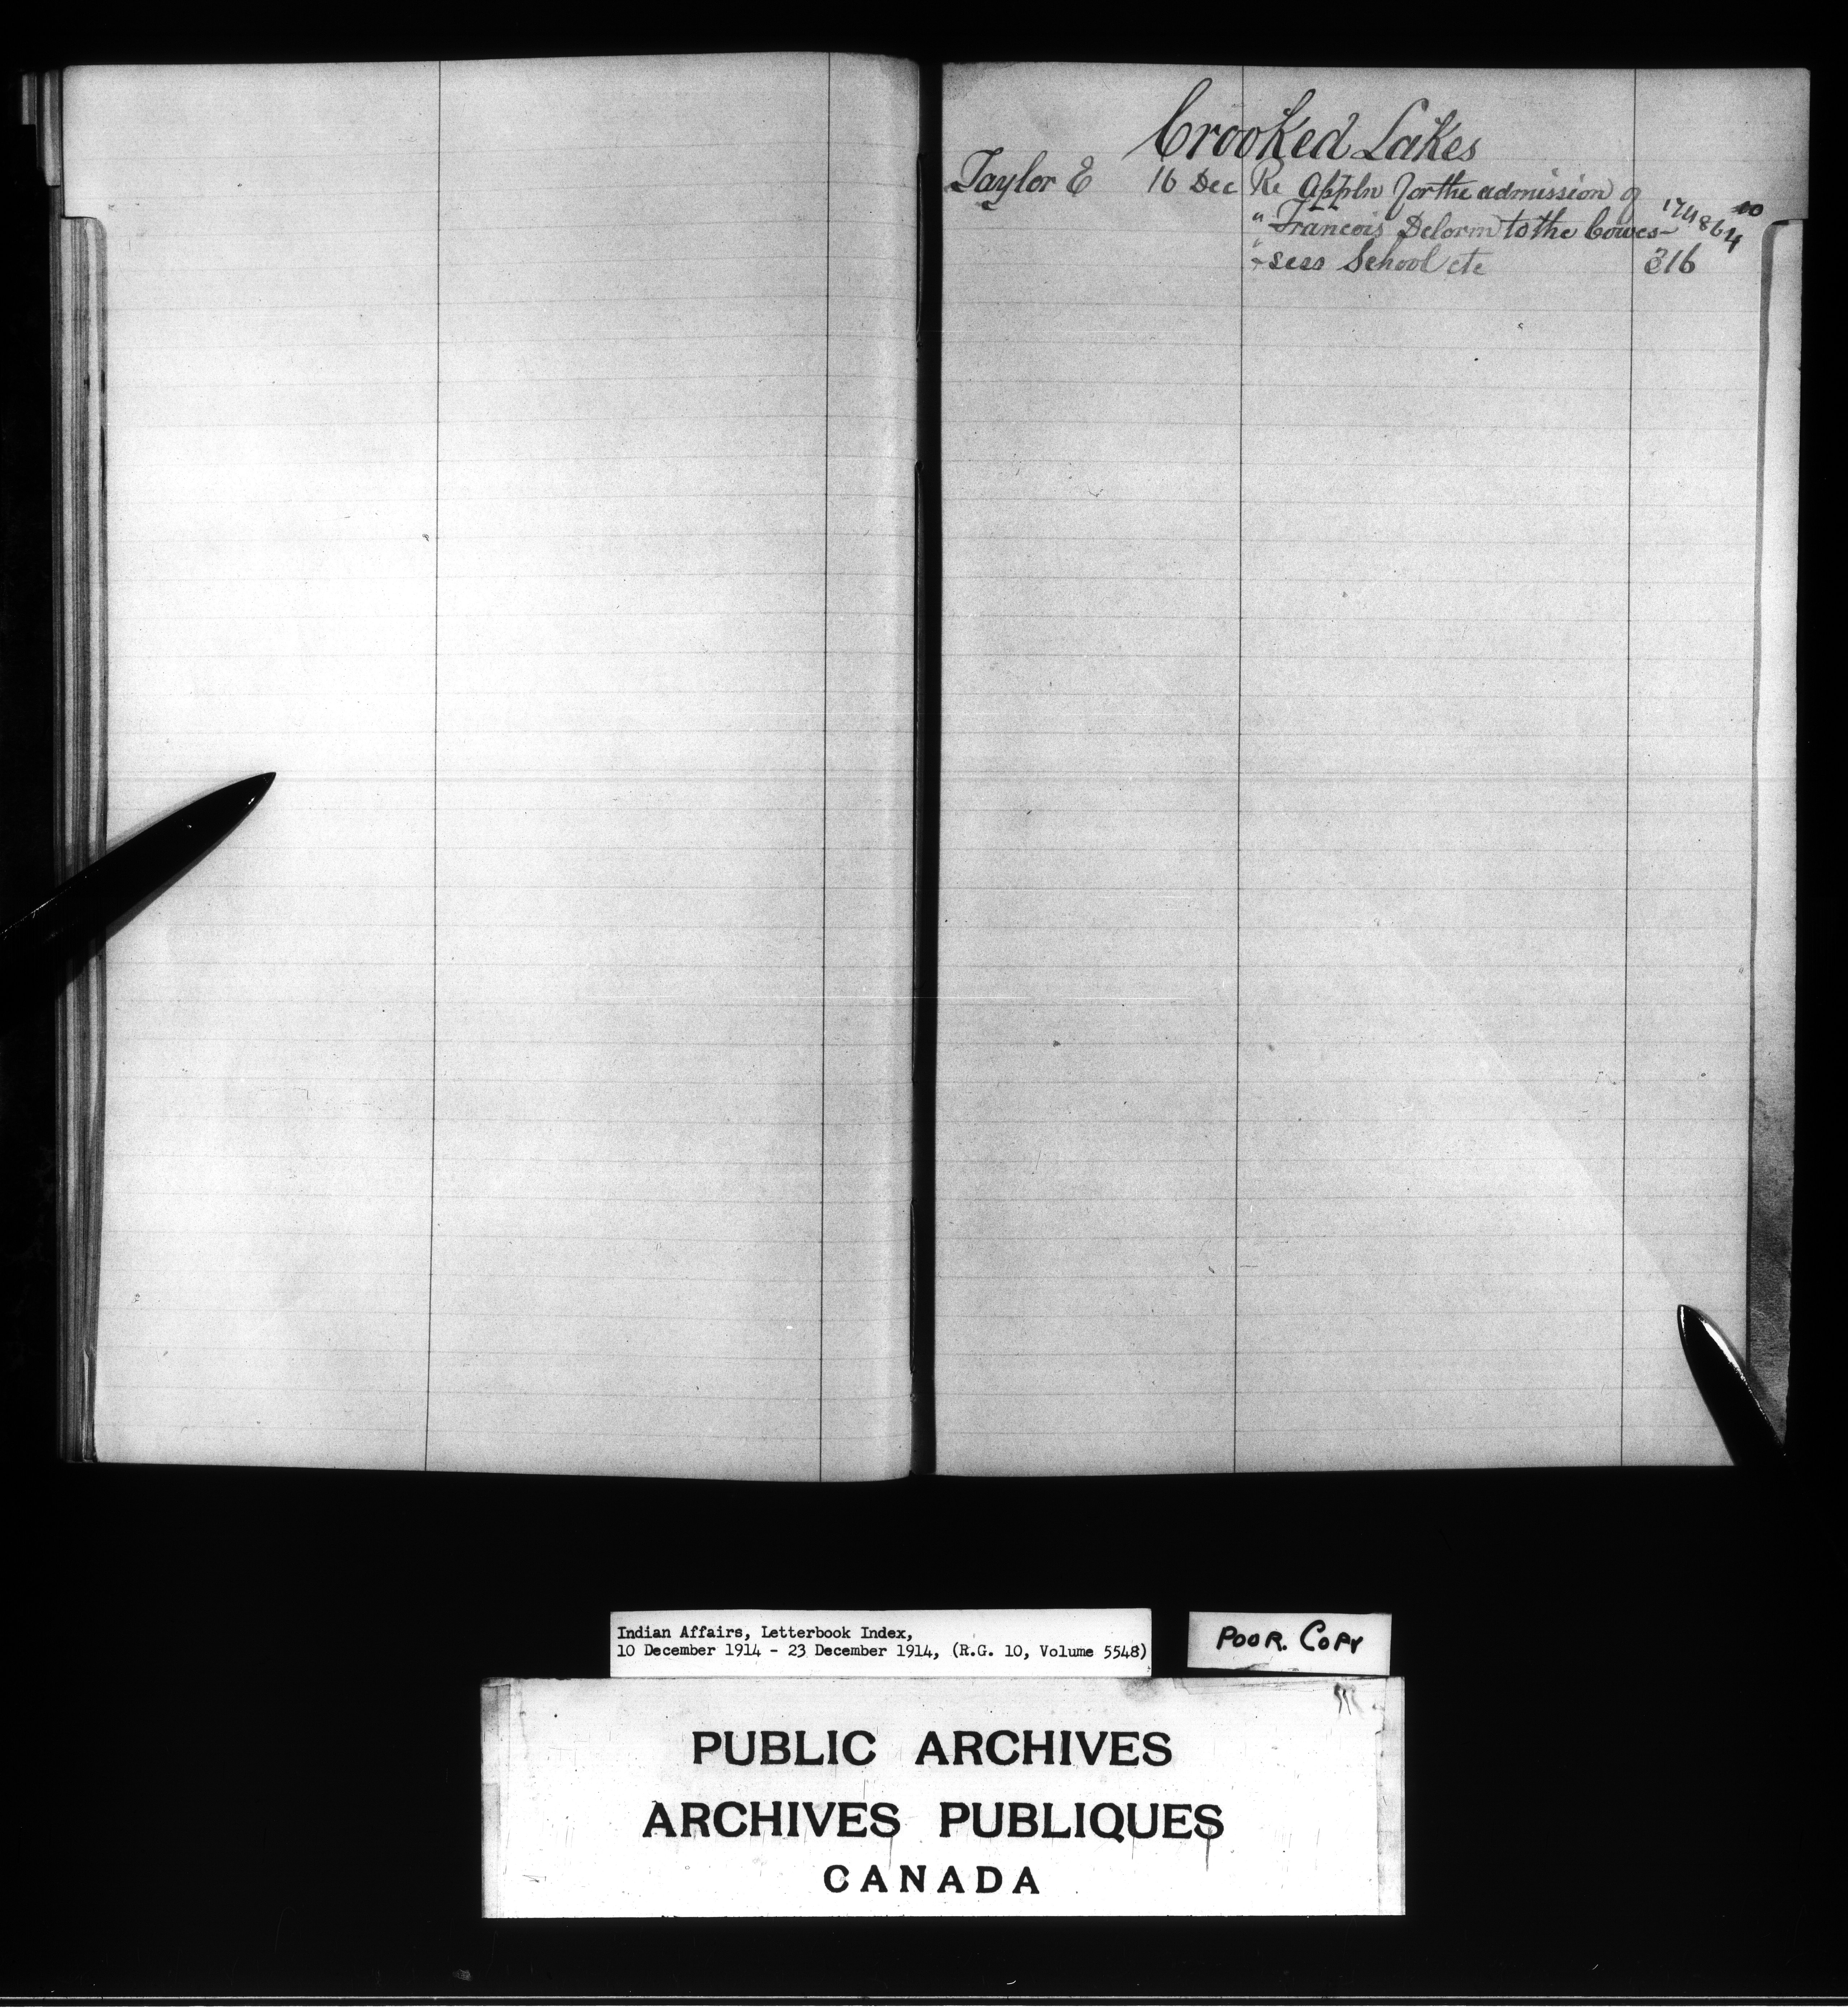 Crooked Lakes
Taylor E 16 Dec Re Appln for the admission of
" Francois Delorm to the Cowes-
" sess School etc 316
Indian Affairs, Letterbook Index,
10 December 1914 - 23 December 1914, (R.G. 10, Volume 5548)
POOR. COPY
PUBLIC ARCHIVES
ARCHIVES PUBLIQUES
CANADA